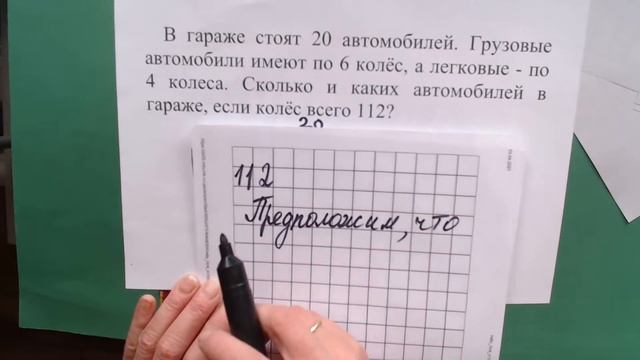 В гараже стоят 20 автомобилей. Грузовые
автомобили имеют по 6 колёс, а легковые - по
4 колеса. Сколько и каких автомобилей в
гараже, если колёс всего 112?
20
112
Предположим, что